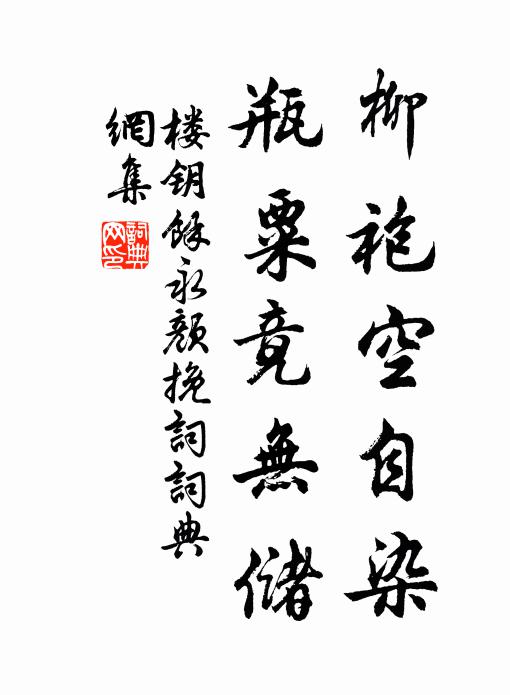 柳袍空自染
瓶粟竟無儲
楼钥餘永顏挽詞詞典
網集
詞典
网印